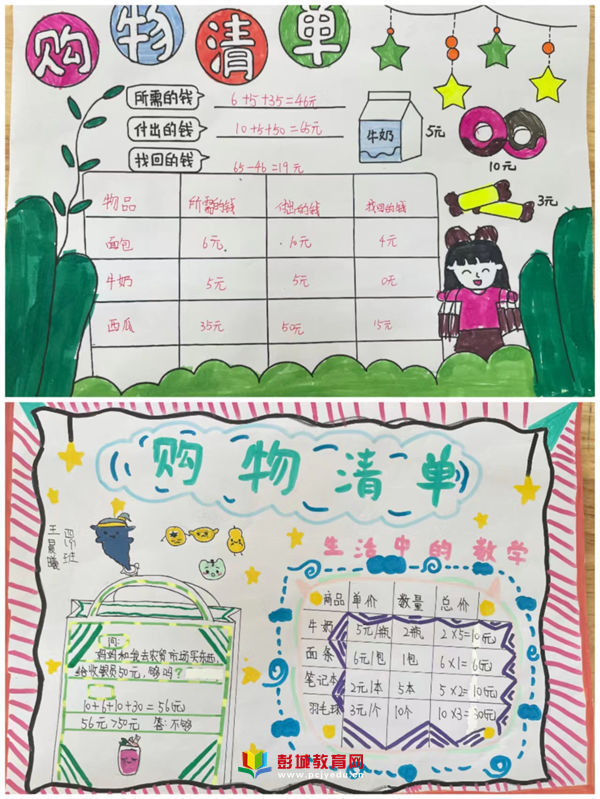 购物清单
所需的钱 6+5+35=46元
付出的钱 10+5+50=65元
找回的钱 65-46=19元
牛奶 5元
10元
3元
物品 所需的钱 付出的钱 找回的钱
面包 6元 10元 4元
牛奶 5元 5元 0元
西瓜 35元 50元 15元
购物清单
生活中的数学
问:
妈妈和我去农贸市场买东西,
给收银员50元,够吗?
10+6+10+30=56(元)
56元>50元 答:不够
商品 单价 数量 总价
牛奶 5元/瓶 2瓶 2×5=10(元)
面条 6元/包 1包 6×1=6(元)
笔记本 2元/本 5本 5×2=10(元)
羽毛球 3元/个 10个 10×3=30(元)
彭城教育网
www.pcjyedu.cn